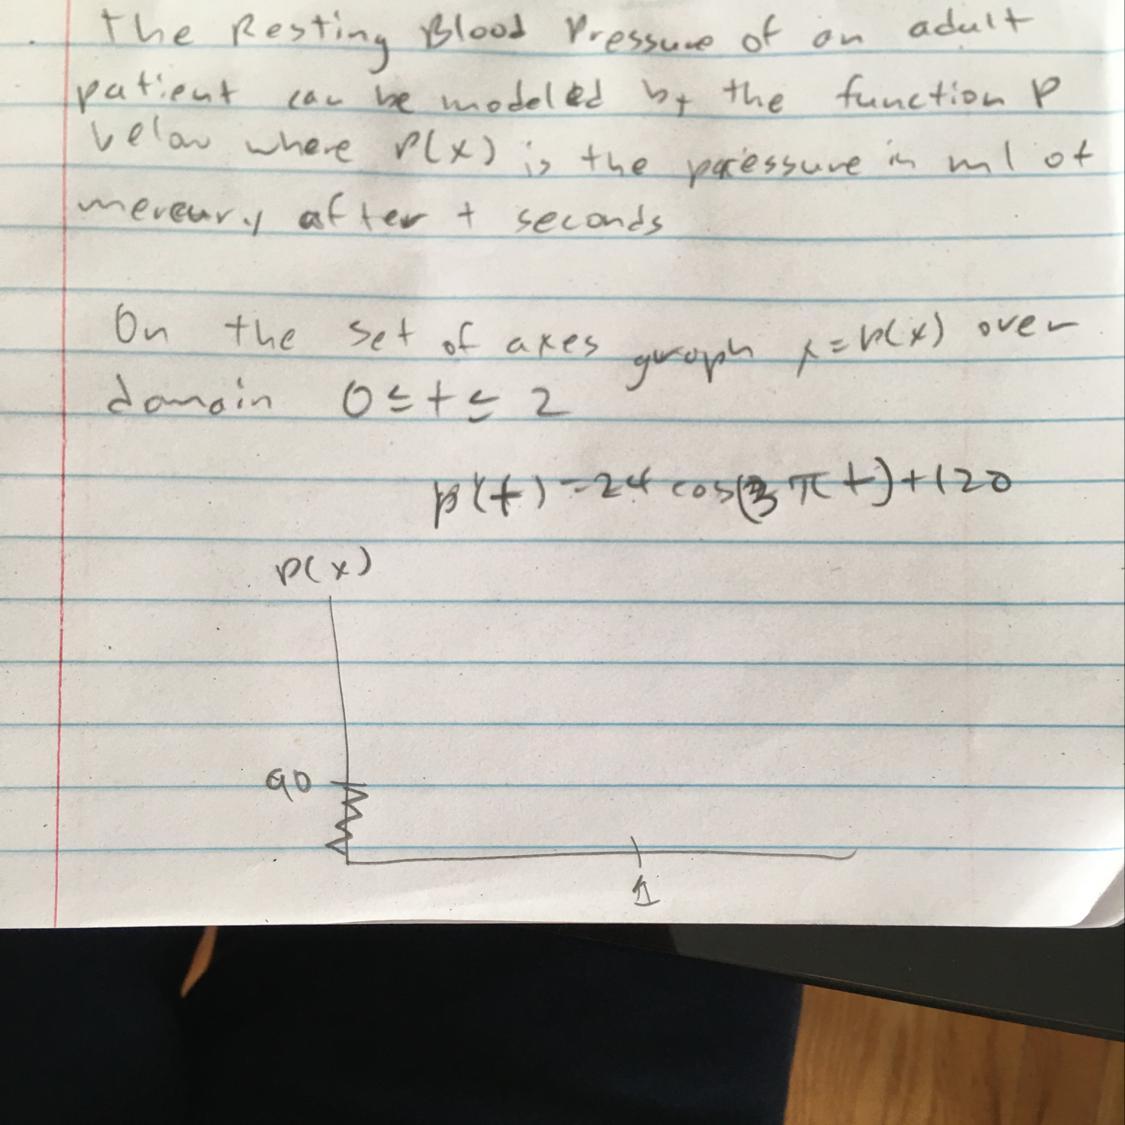 The Resting Blood Pressure of an adult
patient can be modeled by the function P
below where P(x) is the pressure in ml of
mercury after t seconds
On the set of axes graph y=P(x) over
domain 0≤t≤2
p(t)=24 cos(3πt)+120
P(x)
90
1